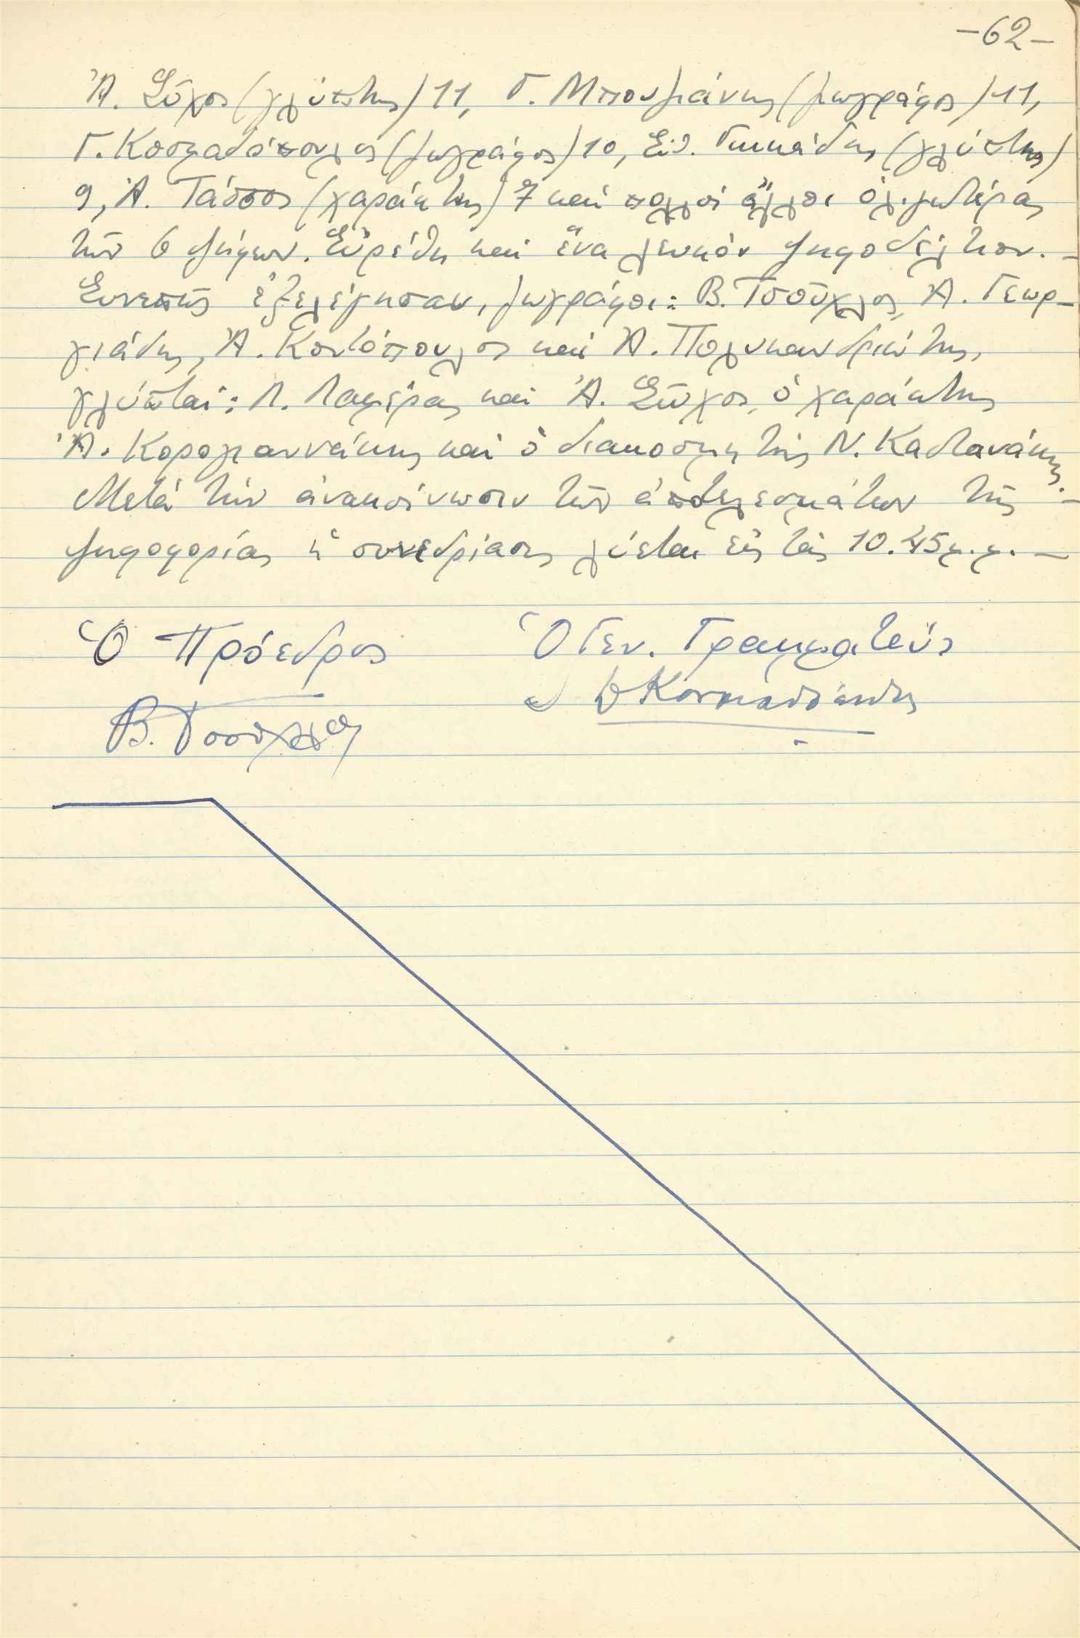 -62-
Ἀ. Σῶχος (γλύπτης) 11, Γ. Μπουζιάνης (ζωγράφος) 11,
Γ. Κοσμαδόπουλος (ζωγράφος) 10, Εὐ. Γιαννιάδης (γλύπτης)
9, Ἀ. Τάσσος (χαράκτης) 7 καί πολλοί ἄλλοι ὀλιγωτέρας
τῶν 6 ψήφων. Εὑρέθη καί ἕνα λευκόν ψηφοδέλτιον. -
Συνεπῶς ἐξελέγησαν, ζωγράφοι: Β. Τσοῦχλος, Ἀ. Γεωρ-
γιάδης, Ἀ. Κοντόπουλος καί Ἀ. Πολυκανδριώτης,
γλύπται: Λ. Λαμέρας καί Ἀ. Σῶχος, ὁ χαράκτης
Ἀ. Κορογιαννάκης καί ὁ διακοσμητής Ν. Καστανάκης. -
Μετά τήν ἀνακοίνωσιν τῶν ἀποτελεσμάτων τῆς
ψηφοφορίας ἡ συνεδρίασις λύεται εἰς τάς 10.45 μ.μ. -
Ὁ Πρόεδρος
Ὁ Γεν. Γραμματεύς
Β. Τσοῦχλος